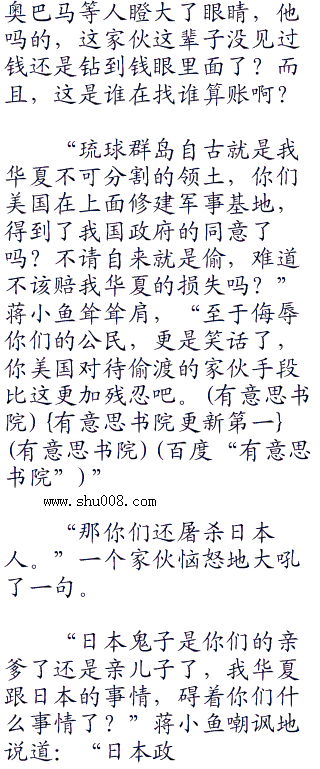 奥巴马等人瞪大了眼睛，他
吗的，这家伙这辈子没见过
钱还是钻到钱眼里面了？而
且，这是谁在找谁算账啊？
“琉球群岛自古就是我
华夏不可分割的领土，你们
美国在上面修建军事基地，
得到了我国政府的同意了
吗？不请自来就是偷，难道
不该赔我华夏的损失吗？”
蒋小鱼耸耸肩，“至于侮辱
你们的公民，更是笑话了，
你美国对待偷渡的家伙手段
比这更加残忍吧。(有意思书
院){有意思书院更新第一}
(有意思书院)(百度“有意思
书院”)”
www.shu008.com
“那你们还屠杀日本
人。”一个家伙恼怒地大吼
了一句。
“日本鬼子是你们的亲
爹了还是亲儿子了，我华夏
跟日本的事情，碍着你们什
么事情了？”蒋小鱼嘲讽地
说道：“日本政